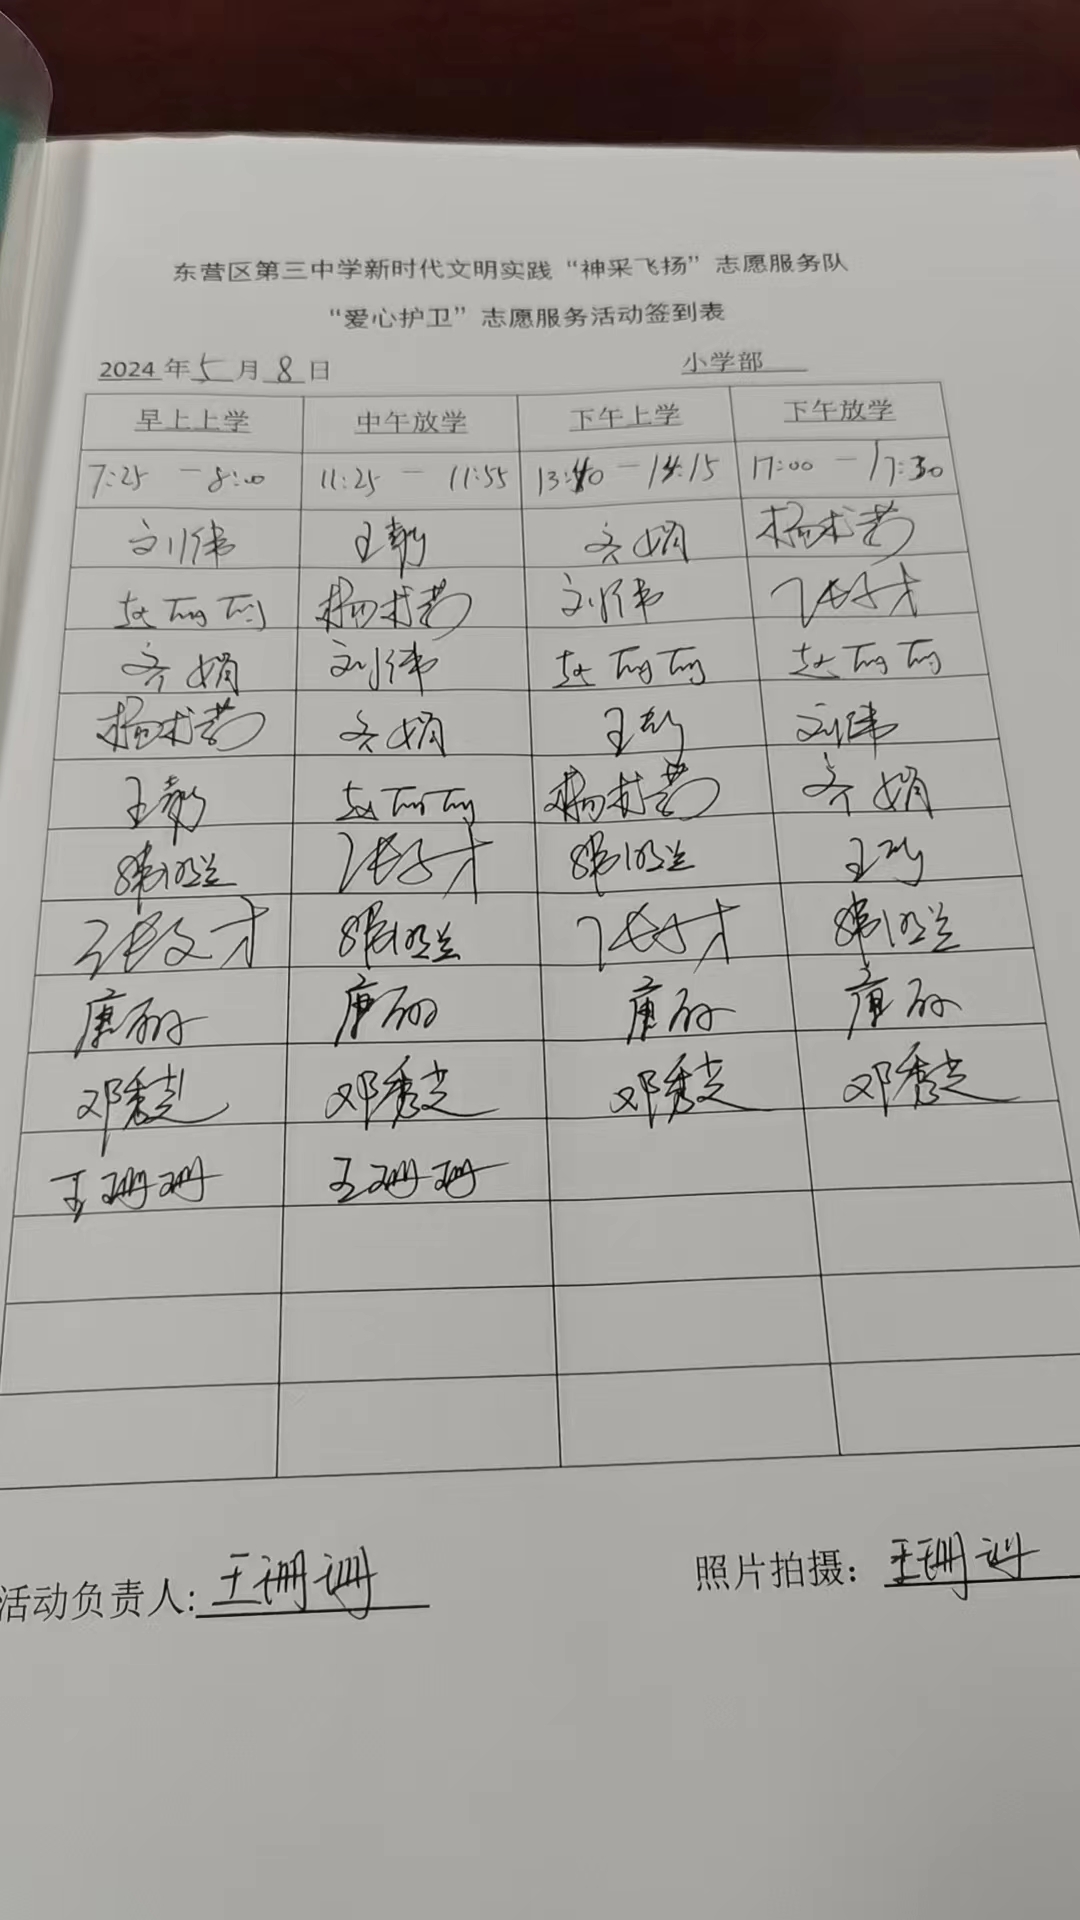 东营区第三中学新时代文明实践“神采飞扬”志愿服务队
“爱心护卫”志愿服务活动签到表
2024年5月8日 小学部
早上上学 中午放学 下午上学 下午放学
7:25 — 8:00 11:25 — 11:55 13:40 — 14:15 17:00 — 17:30
刘伟 王 齐娟 杨术芳
赵丽丽 杨术芳 刘伟
齐娟 刘伟 赵丽丽 赵丽丽
杨术芳 齐娟 王 刘伟
王 赵丽丽 杨术芳 齐娟
韩明兰 韩明兰 王
张文才 韩明兰 韩明兰
唐丽 唐丽 唐丽 唐丽
邓秀芝 邓秀芝 邓秀芝 邓秀芝
王珊珊 王珊珊
活动负责人:王珊珊 照片拍摄:王珊珊